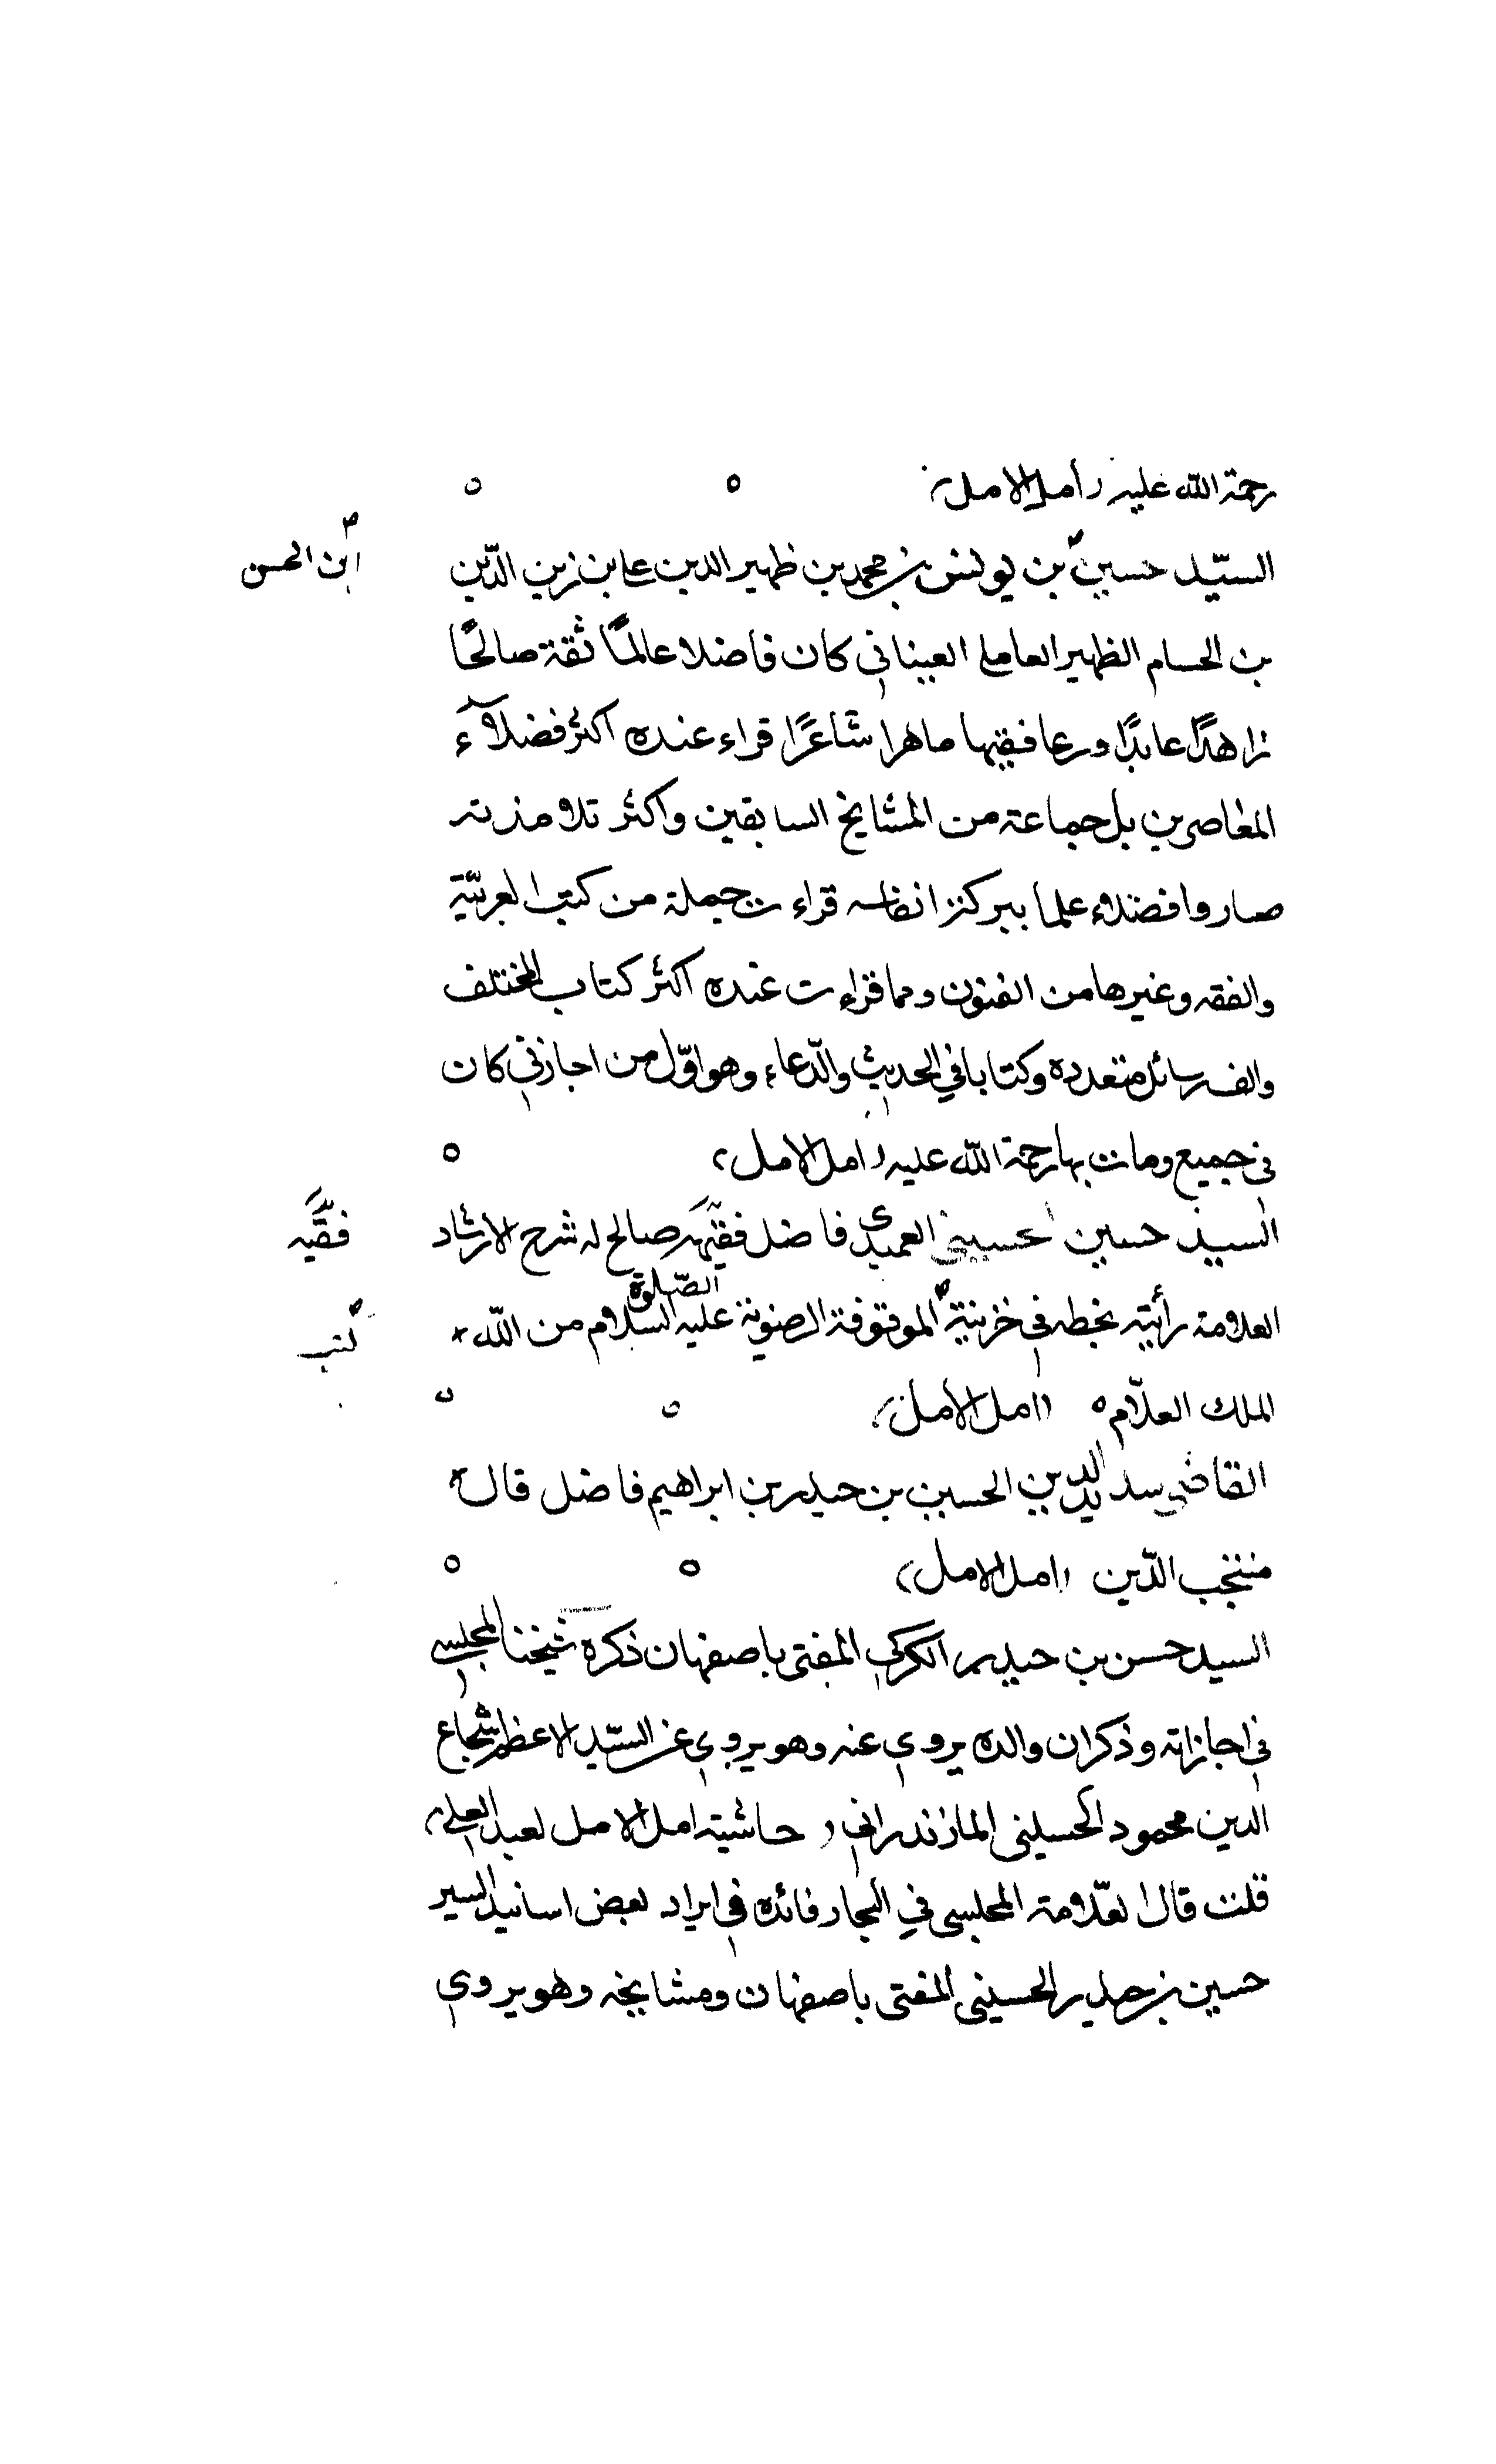 رحمة الله عليه (امل الامل)
السيّد حسين بن يونس بن محمد بن ظهير الدين علي بن زين الدّين
ابن الحسن
بن الحسام الظهير العاملي العيناثي كان فاضلا عالمًا ثقة صالحًا
زاهدًا عابدًا ورعا فقيها ماهرا شاعرًا قراء عنده اكثر فضلآء
المعاصرين بل جماعة من المشايخ السابقين واكثر تلامذته
صاروا فضلاء علما ببركة انفاسه قراءت جملة من كتب العربيّة
والفقه وغيرها من الفنون ومما قراءت عنده اكثر كتاب المختلف
والف رسائل متعدده وكتابا في الحديث والدّعاء وهو اوّل من اجازني كان
في جميع ومات بها رحمة الله عليه (امل الامل)
السيد حسين الحسيني العميدي فاضل فقيه صالح له شرح الارشاد
فقيه
العلامة رأيته بخطه في خزينة الموقوفة الرضوية عليه الصّلوة السلام من الله
كتب
الملك العلّام (امل الامل)
القاضي سديد الدين الحسين بن حيدر بن ابراهيم فاضل قال
منتجب الدّين (امل الامل)
السيد حسن بن حيدر الكركي المفتى باصفهان ذكره شيخنا المجلسي
في اجازاته وذكر ان والده يروي عنه وهو يروي عن السيّد الاعظم شجاع
الدين محمود الحسيني المازندراني (حاشية امل الامل لعبد العلي)
قلت قال العلّامة المجلسي في البحار فائده في ايراد بعض اسانيد السير
حسين بن حيدر الحسيني المفتى باصفهان ومشايخه وهو يروي